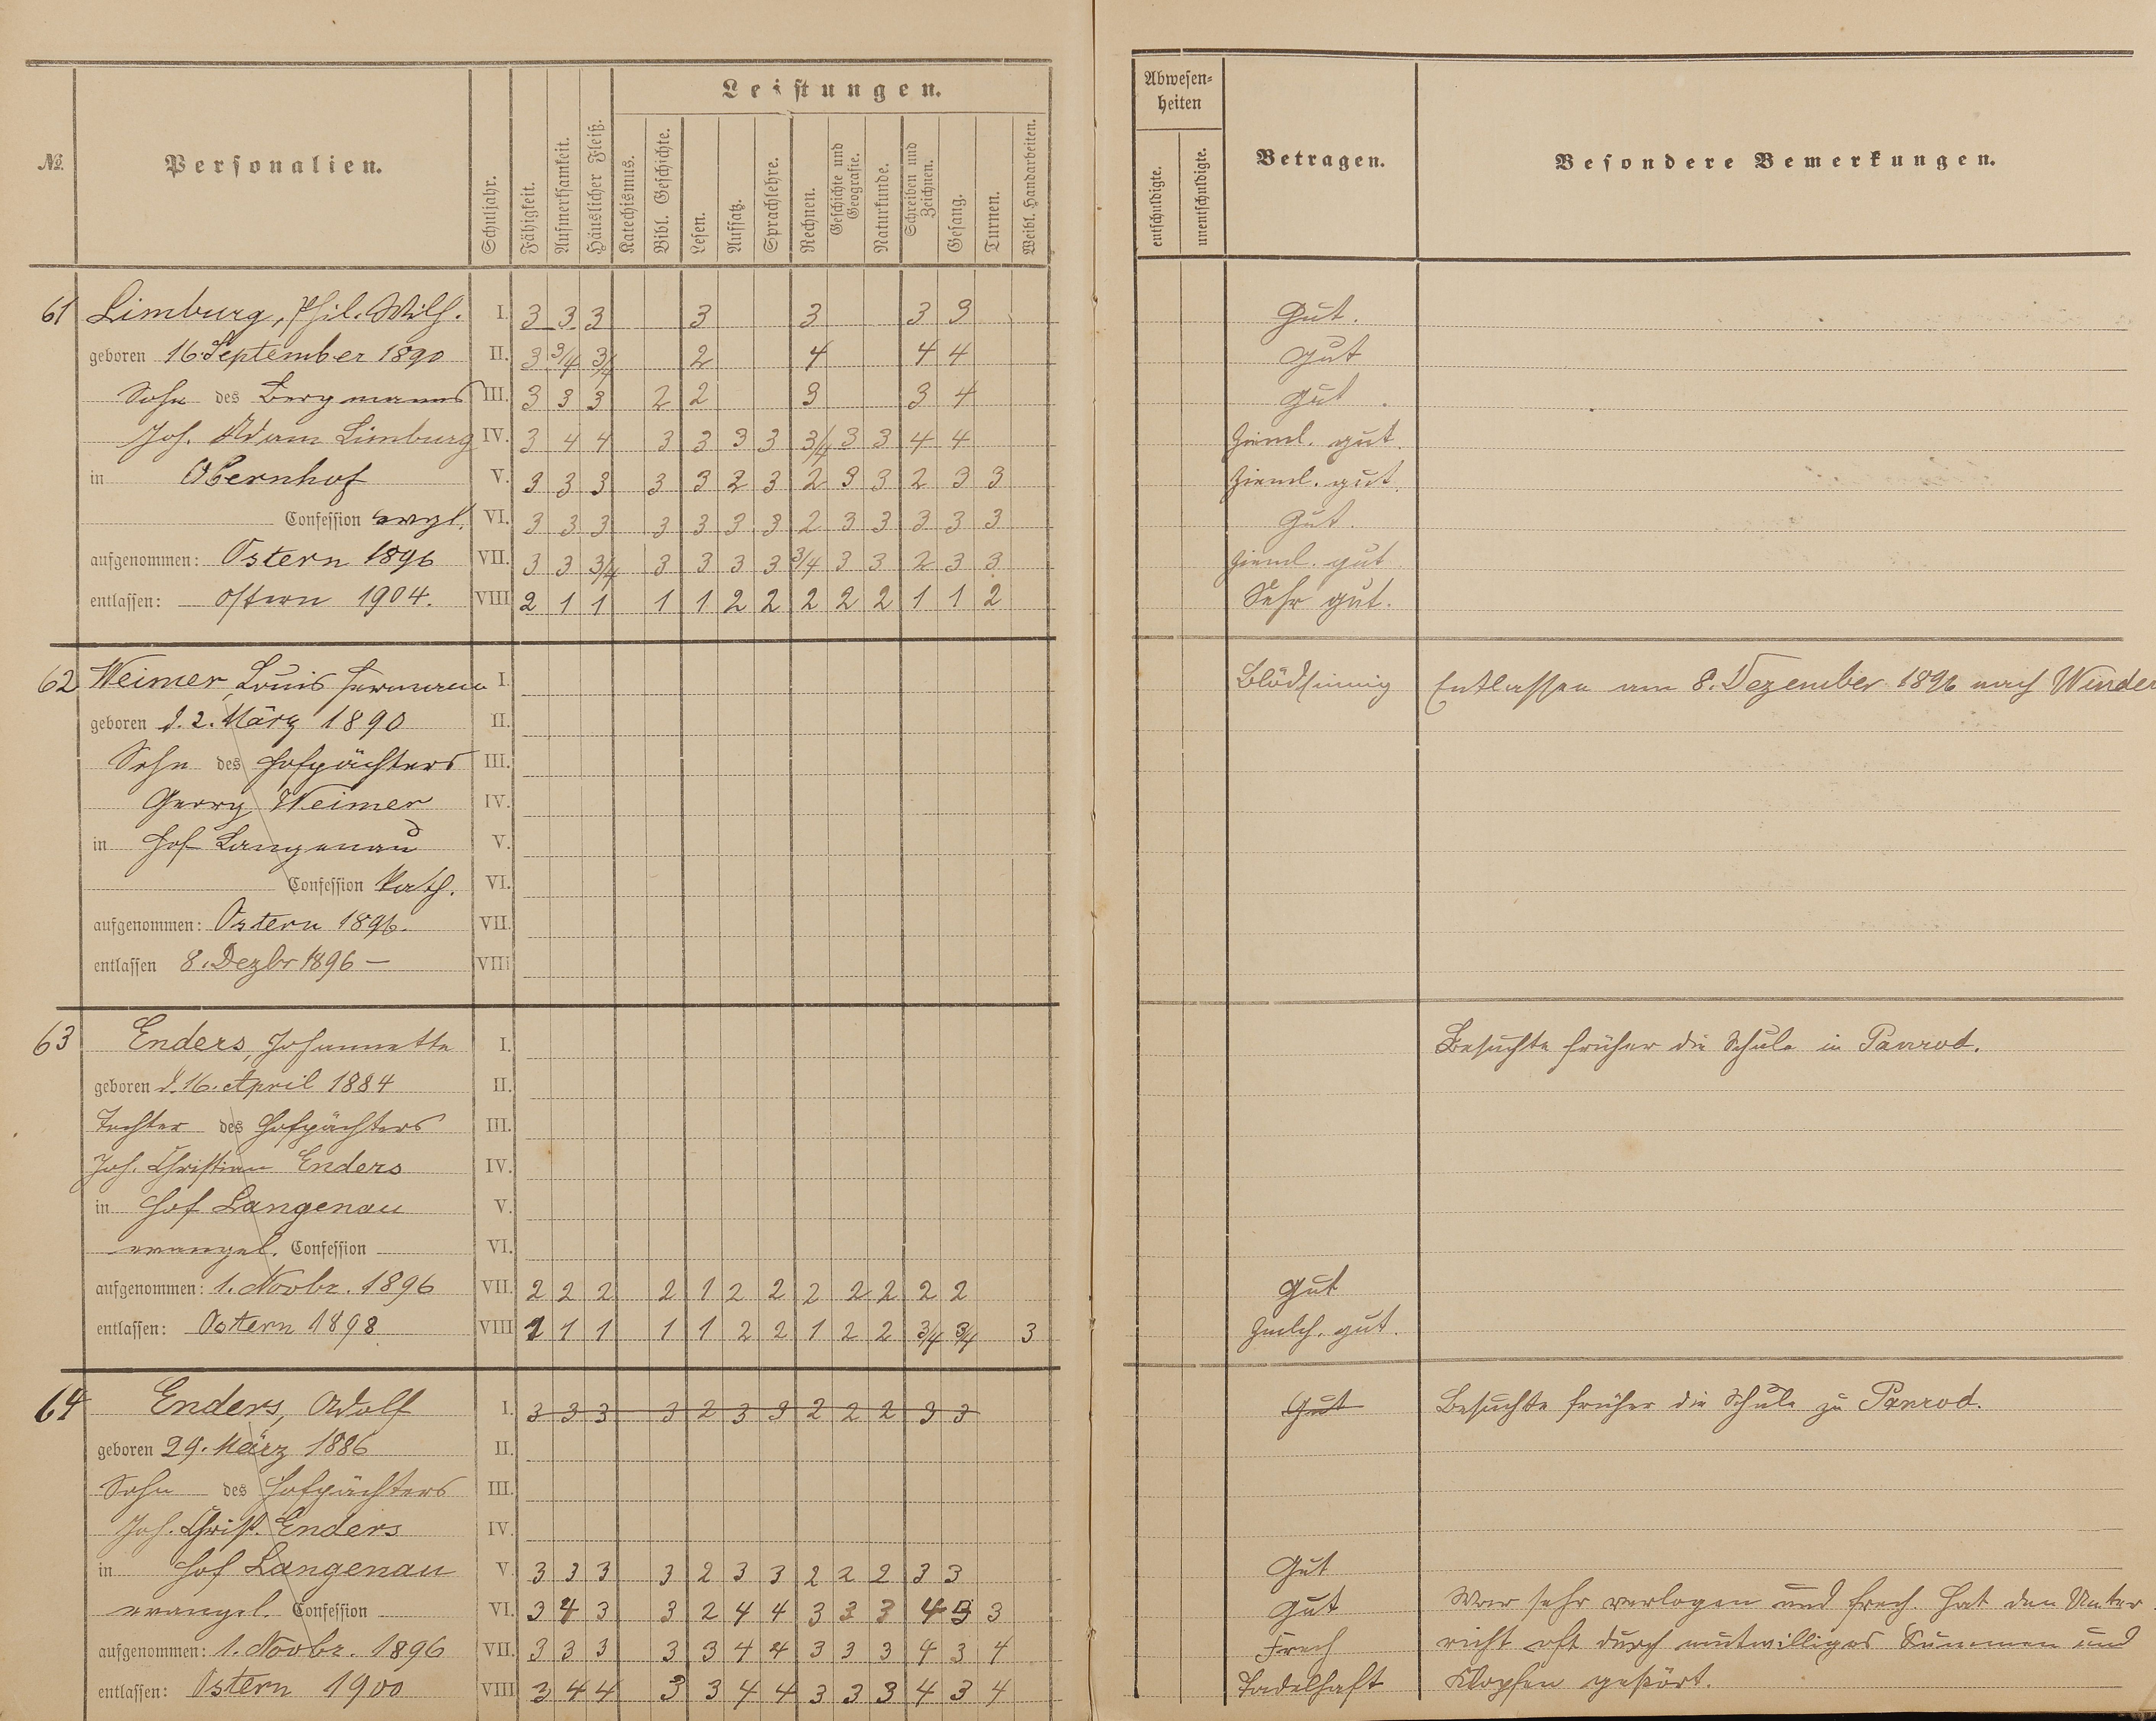 №
Personalien.
Schuljahr.
Fähigkeit.
Aufmerksamkeit.
Häuslicher Fleiß.
Leistungen.
Katechismus.
Bibl. Geschichte.
Lesen.
Aufsatz.
Sprachlehre.
Rechnen.
Geschichte und Geografie.
Naturkunde.
Schreiben und Zeichnen.
Gesang.
Turnen.
Weibl. Handarbeiten.
Abwesen-
heiten
entschuldigte.
unentschuldigte.
Betragen.
Besondere Bemerkungen.
61 Limburg, Phil. Wilh. I. 3 3 3 3 3 3 3 Gut.
geboren 16. September 1890 II. 3 3/4 3/4 2 4 4 4 Gut
Sohn des Bergmanns III. 3 3 3 2 2 3 3 4 Gut.
Joh. Adam Limburg IV. 3 4 4 3 3 3 3 3/4 3 3 4 4 Zieml. gut.
in Obernhof V. 3 3 3 3 3 2 3 2 3 3 2 3 3 Zieml. gut.
Confession evgl. VI. 3 3 3 3 3 3 3 2 3 3 3 3 3 Gut.
aufgenommen: Ostern 1896 VII. 3 3 3/4 3 3 3 3 3/4 3 3 2 3 3 Zieml. gut.
entlassen: Ostern 1904. VIII 2 1 1 1 1 2 2 2 2 2 1 1 2 Sehr gut.
62 Weimer, Louis Hermann I. Blödsinnig Entlassen am 8. Dezember 1896 nach Winden
geboren d. 2. März 1890 II.
Sohn des Hofpächters III.
Georg Weimer IV.
in Hof Langenau V.
Confession Kath. VI.
aufgenommen: Ostern 1896. VII.
entlassen 8. Dezbr 1896 – VIII
63 Enders, Johannette I. Besuchte früher die Schule in Panrod.
geboren d. 16. April 1884 II.
Tochter des Hofpächters III.
Joh. Christian Enders IV.
in Hof Langenau V.
evangel. Confession VI.
aufgenommen: 1. Novbr. 1896 VII. 2 2 2 2 1 2 2 2 2 2 2 2 Gut
entlassen: Ostern 1898 VIII 1 1 1 1 1 2 2 1 2 2 3/4 3/4 3 Zmlch. gut.
64 Enders, Adolf I. 3 3 3 3 2 3 3 2 2 2 3 3 Gut Besuchte früher die Schule zu Panrod.
geboren 29. März 1886 II.
Sohn des Hofpächters III.
Joh. Christ. Enders IV.
in Hof Langenau V. 3 3 3 3 2 3 3 2 2 2 3 3 Gut
evangel. Confession VI. 3 4 3 3 2 4 4 3 3 3 4 3 3 Gut War sehr verlogen und frech. Hat den Unter-
aufgenommen: 1. Novbr. 1896 VII. 3 3 3 3 3 4 4 3 3 3 4 3 4 Frech richt oft durch mutwilliges Summen und
entlassen: Ostern 1900 VIII 3 4 4 3 3 4 4 3 3 3 4 3 4 Tadelhaft Klopfen gestört.